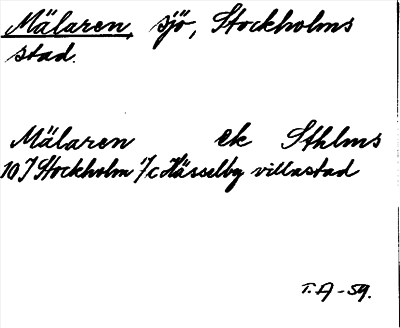 Mälaren, sjö, Stockholms
stad.
Mälaren ek Sthlms
10 I Stockholm 7c Hässelby villastad
T.A-59.